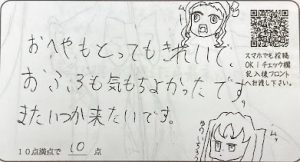 おへやもとってもきれいで、
おふろも気もちよかったです。
またいつか来たいです。
10点満点で 10 点
スマホでも投稿
OK！チェック欄
記入後フロント
へお渡し下さい。